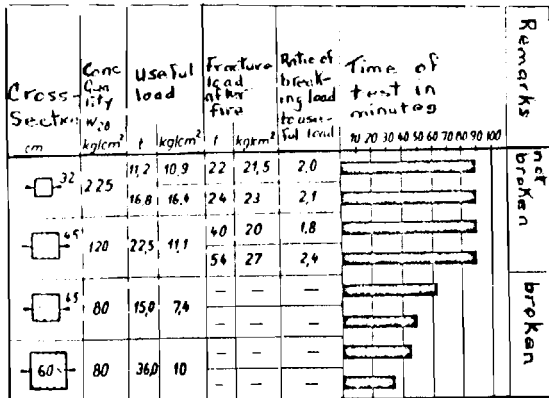 Cross-
Section
cm
Conc
Qua
lity
W28
kg/cm²
Useful
load
t kg/cm²
Fracture
load
after
fire
t kg/cm²
Ratio of
break-
ing load
to use-
ful load
Time of
test in
minutes
10 20 30 40 50 60 70 80 90 100
Remarks
32 225 11,2 10,9 22 21,5 2,0
16,8 16,4 24 23 2,1
not
broken
45 120 22,5 11,1 40 20 1,8
54 27 2,4
45 80 15,0 7,4 — — —
— — —
broken
60 80 36,0 10 — — —
— — —